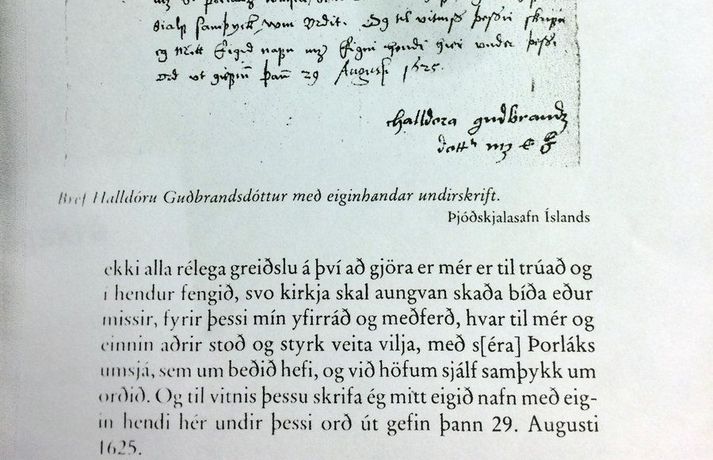 sialf samþyck um ordit. Og til vitnis þessu skrifa
eg mitt eigid nafn med eigin hendi hier under þessi
ord ut gefin þann 29 Augusti 1625.
halldora gudbrandz
dotter m e h
Bréf Halldóru Guðbrandsdóttur með eiginhandar undirskrift.
Þjóðskjalasafn Íslands
ekki alla rélega greiðslu á því að gjöra er mér er til trúað og
í hendur fengið, svo kirkja skal aungvan skaða bíða eður
missir, fyrir þessi mín yfirráð og meðferð, hvar til mér og
einnin aðrir stoð og styrk veita vilja, með s[éra] Þorláks
umsjá, sem um beðið hefi, og við höfum sjálf samþykk um
orðið. Og til vitnis þessu skrifa ég mitt eigið nafn með eig-
in hendi hér undir þessi orð út gefin þann 29. Augusti
1625.